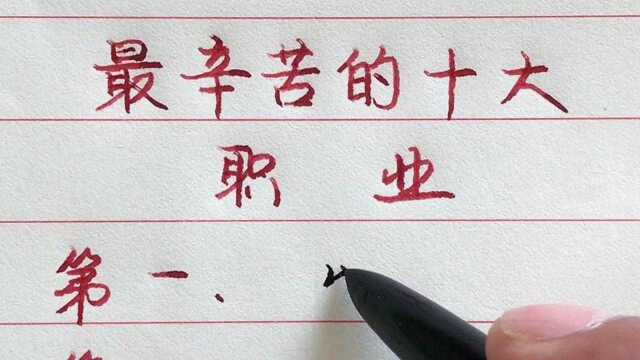 最辛苦的十大
职业
第一、